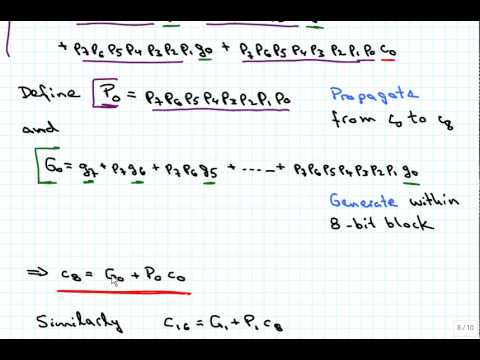 + P7P6P5P4P3P2P1g0 + P7P6P5P4P3P2P1P0C0
Define P0 = P7P6P5P4P3P2P1P0 Propagate
and from c0 to c8
G0 = g7 + P7g6 + P7P6g5 + ---- + P7P6P5P4P3P2P1g0
Generate within
8-bit block
⇒ c8 = G0 + P0c0
Similarly c16 = G1 + P1c8
8 / 10